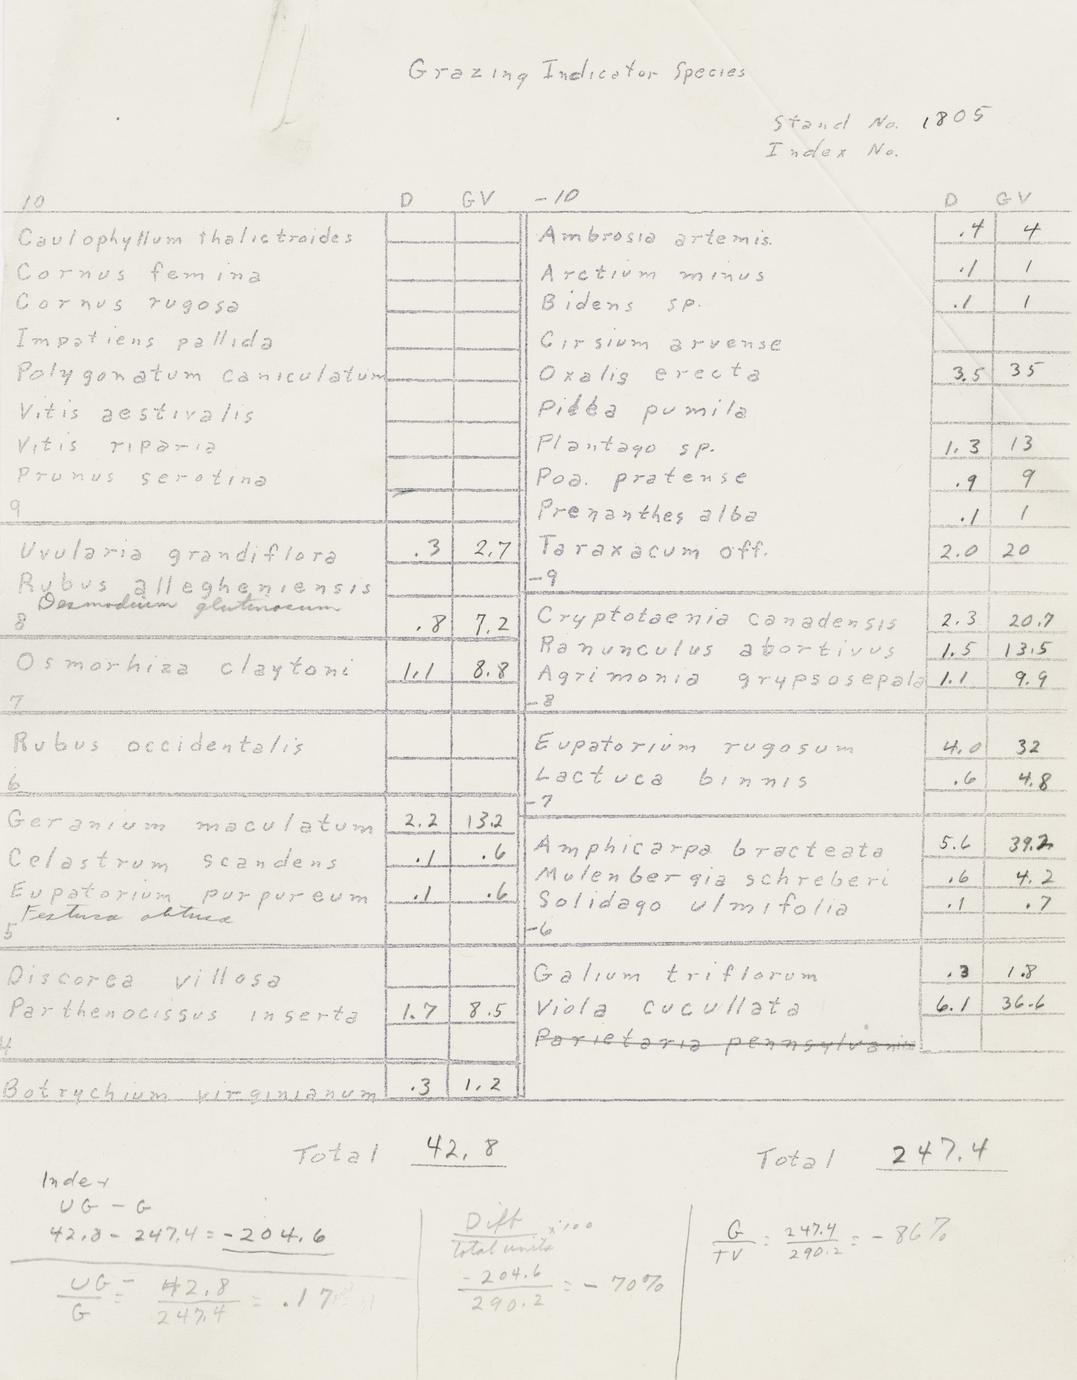 Grazing Indicator Species
Stand No. 1805
Index No.
10 D GV
Caulophyllum thalictroides
Cornus femina
Cornus rugosa
Impatiens pallida
Polygonatum caniculatum
Vitis aestivalis
Vitis riparia
Prunus serotina
9
Uvularia grandiflora .3 2.7
Rubus allegheniensis
Desmodium glutinosum .8 7.2
8
Osmorhiza claytoni 1.1 8.8
7
Rubus occidentalis
6
Geranium maculatum 2.2 13.2
Celastrum scandens .1 .6
Eupatorium purpureum .1 .6
Festuca obtusa
5
Discorea villosa
Parthenocissus inserta 1.7 8.5
4
Botrychium virginianum .3 1.2
Total 42.8
-10 D GV
Ambrosia artemis. .4 4
Arctium minus .1 1
Bidens sp. .1 1
Cirsium arvense
Oxalis erecta 3.5 35
Pilea pumila
Plantago sp. 1.3 13
Poa. pratense .9 9
Prenanthes alba .1 1
Taraxacum off. 2.0 20
-9
Cryptotaenia canadensis 2.3 20.7
Ranunculus abortivus 1.5 13.5
Agrimonia grypsosepala 1.1 9.9
-8
Eupatorium rugosum 4.0 32
Lactuca binnis .6 4.8
-7
Amphicarpa bracteata 5.6 39.2
Mulenbergia schreberi .6 4.2
Solidago ulmifolia .1 .7
-6
Galium triflorum .3 1.8
Viola cucullata 6.1 36.6
Parietaria pennsylvanic
Total 247.4
Index
UG - G
42.8 - 247.4 = -204.6
UG/G = 42.8/247.4 = .17
Diff/total units x 100
-204.6/290.2 = -70%
G/TV = 247.4/290.2 = -86%